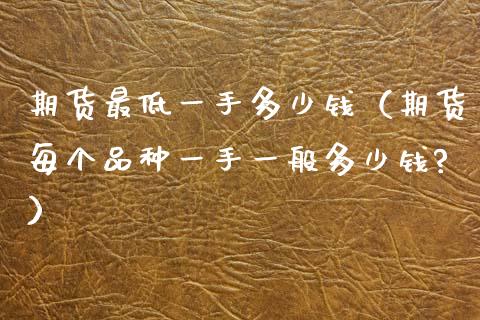 期货最低一手多少钱（期货
每个品种一手一般多少钱?
）